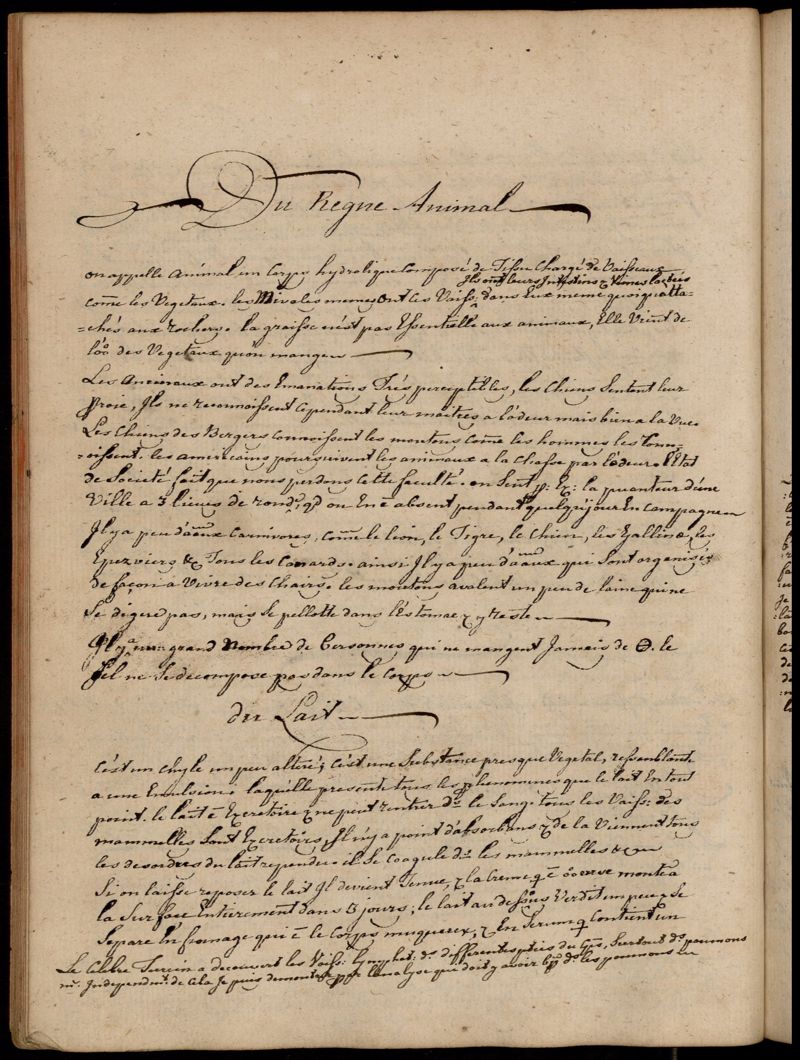 Du Regne Animal
on appelle animal un corps hydrolique composé de Tissu Chargé de Vaisseaux
Ils ont leurs Intestins & Veines lactées
come les Vegetaux. les memes ont les Vaiss: dans Eux meme quoiqu'atta-
=chés aux rochers. la graisse n'est pas Essentielle aux animaux, Elle Vient de
des Vegetaux qu'on mange
Les Animaux ont des Emanations Trés perceptibles, les Chiens Sentent leur
Proie, Ils ne reconnoissent cependant leur maitres a l'odeur mais bien a la Vue.
Les Chiens des Bergers connoissent les moutons come les hommes les conn-
=oissent. les americains poursuivent les animaux a la Chasse par l'odeur. l'Etat
de Societé fait que nous perdons cette faculté. on Sent p: Ex: la puanteur d'une
Ville a 3 lieues de rond, qd on En é absent pendant quelq: jour En campagne
Il y a peu d'aaux Carnivores, come le lion, le Tigre, le Chien, les Gallinæ, les
Eperviers & Tous les Canards. ainsi Il y a peu d'aaux qui Sont organisés
de façon a Vivre des Chairs. les moutons avalent un peu de laine qui ne
Se digere pas, mais Se pellotte dans l'Estomac & y Reste
Il y a un grand Nombre de Personnes qui ne mangent Jamais de ⊖. le
Sel ne Se decompose pas dans le Corps
du Lait
C'est un chyle un peu alteré; c'est une Substance presque Vegetal, ressemblante
a une Emulsion. laquelle presente tous les phenomenes que le lait En tout
point. le lait é Excretoire & ne peut rentrer ds le Sang. tous les Vaiss: des
mammelles Sont Excretoires, Il n'y a point d'absorbans & de la Viennent tous
les desordres du lait rependu. il Se Coagule ds les mammelles &c
Si on laisse reposer le lait Il devient Tenue, & la Creme q é monte a
la Surface Entierement dans 3 jours; le lait au dessous Verdit un peu & Se
Separe En fromage qui é le Corps muqueux, & En Serum q contient un
Le Celebre a decouvert les Vaiss: lymphat: ds differentes pties du Cps, Surtout ds poumons
Independmt de Cela Je puis demontrer par l'analyse qui doit y avoir ds les poumons